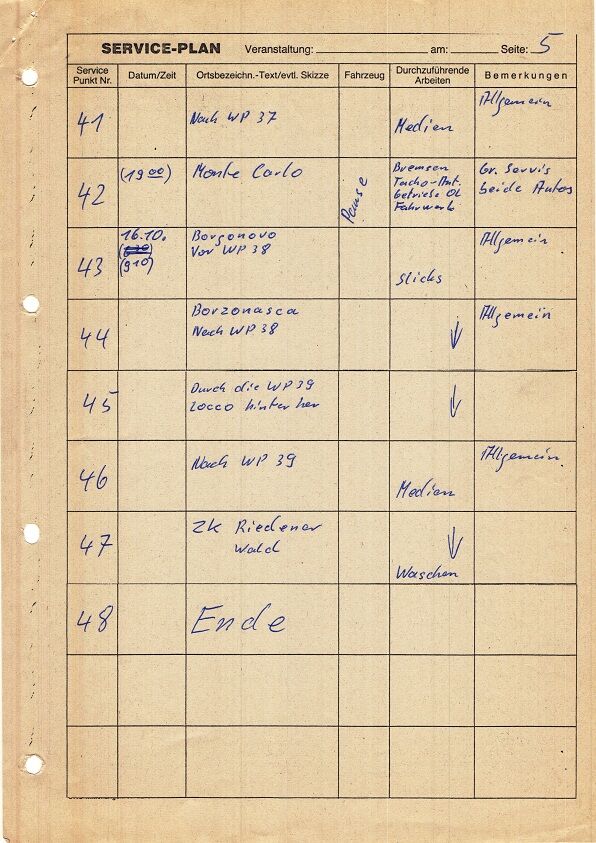 SERVICE-PLAN Veranstaltung: am: Seite: 5
Service Punkt Nr. Datum/Zeit Ortsbezeichn.-Text/evtl. Skizze Fahrzeug Durchzuführende Arbeiten Bemerkungen
41 Nach WP 37 Medien Allgemein
42 (19 00) Monte Carlo Pause Bremsen
Tacho-Ant.
Getriebe Öl
Fahrwerk
Gr. Servis
beide Autos
43 16.10.
(9 10)
Borgonovo
Vor WP 38
Slicks
Allgemein
44 Borzonasca
Nach WP 38
Allgemein
45 Durch die WP 39
Zocco hinter her
46 Nach WP 39
Medien
Allgemein
47 ZK Riedener
Wald
Waschen
48 Ende